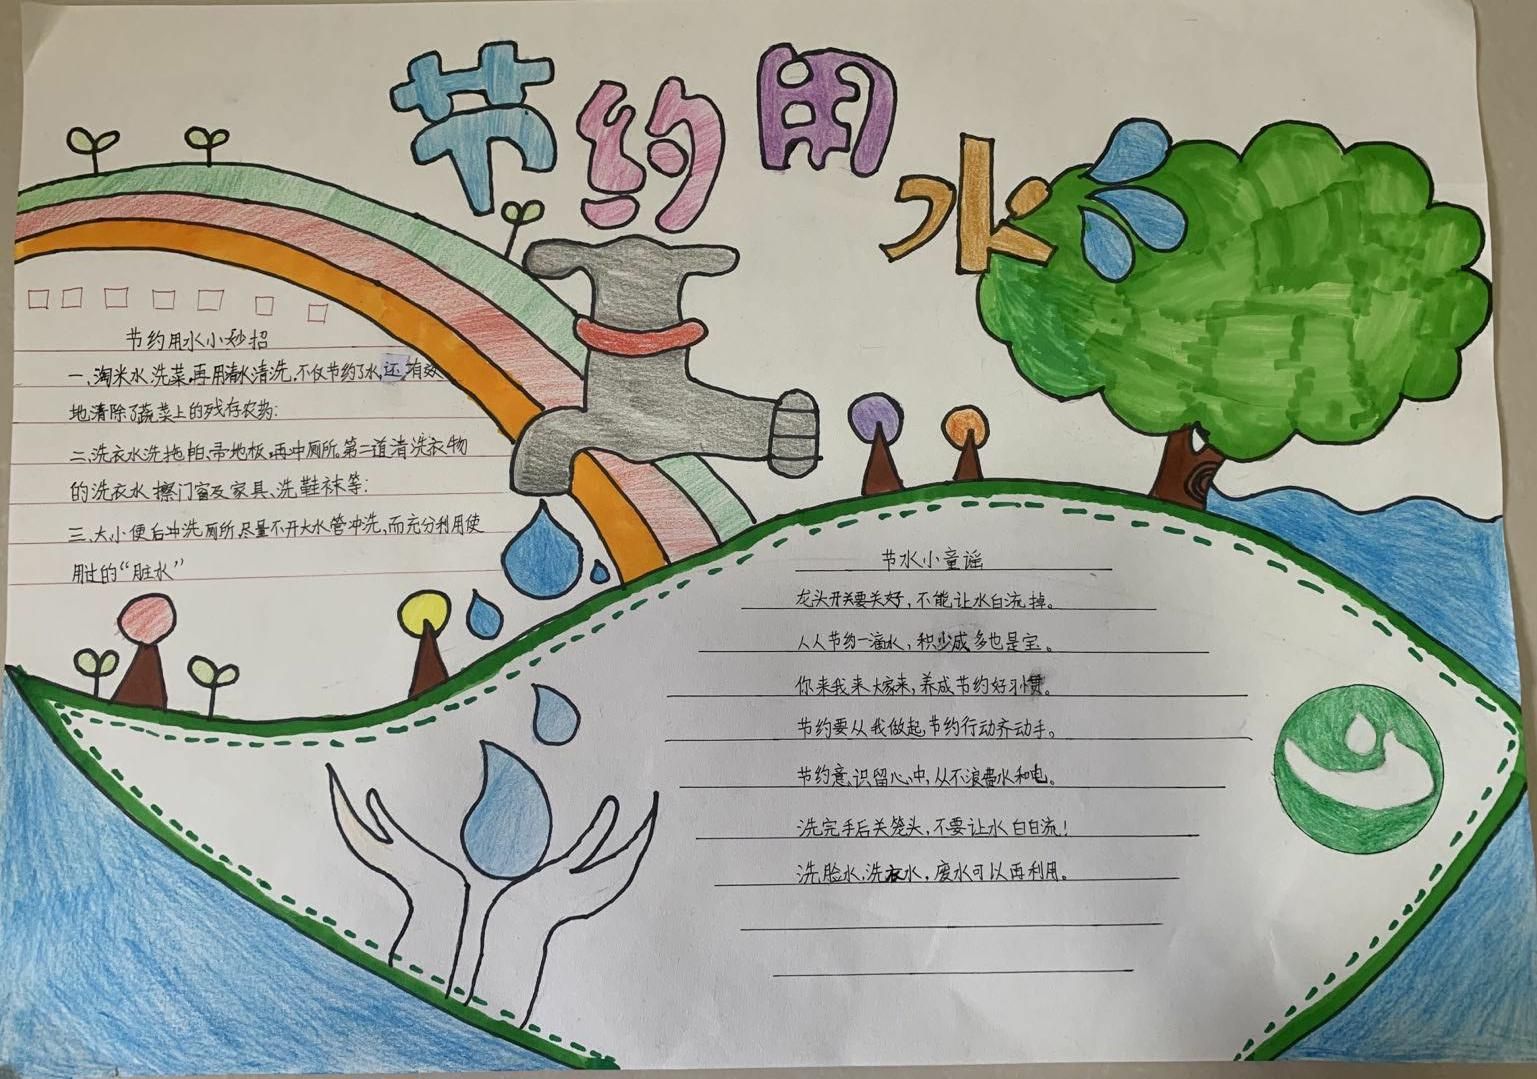 节约用水
节约用水小妙招
一、淘米水洗菜,再用清水清洗,不仅节约了水,还有效
地清除了蔬菜上的残存农药;
二、洗衣水洗拖帕、帚地板,再冲厕所。第二道清洗衣物
的洗衣水擦门窗及家具、洗鞋袜等;
三、大、小便后冲洗厕所,尽量不开大水管冲洗,而充分利用使
用过的“脏水”
节水小童谣
龙头开关要关好,不能让水白流掉。
人人节约一滴水,积少成多也是宝。
你来我来大家来,养成节约好习惯。
节约要从我做起,节约行动齐动手。
节约意识留心中,从不浪费水和电。
洗完手后关笼头,不要让水白白流!
洗脸水,洗衣水,废水可以再利用。